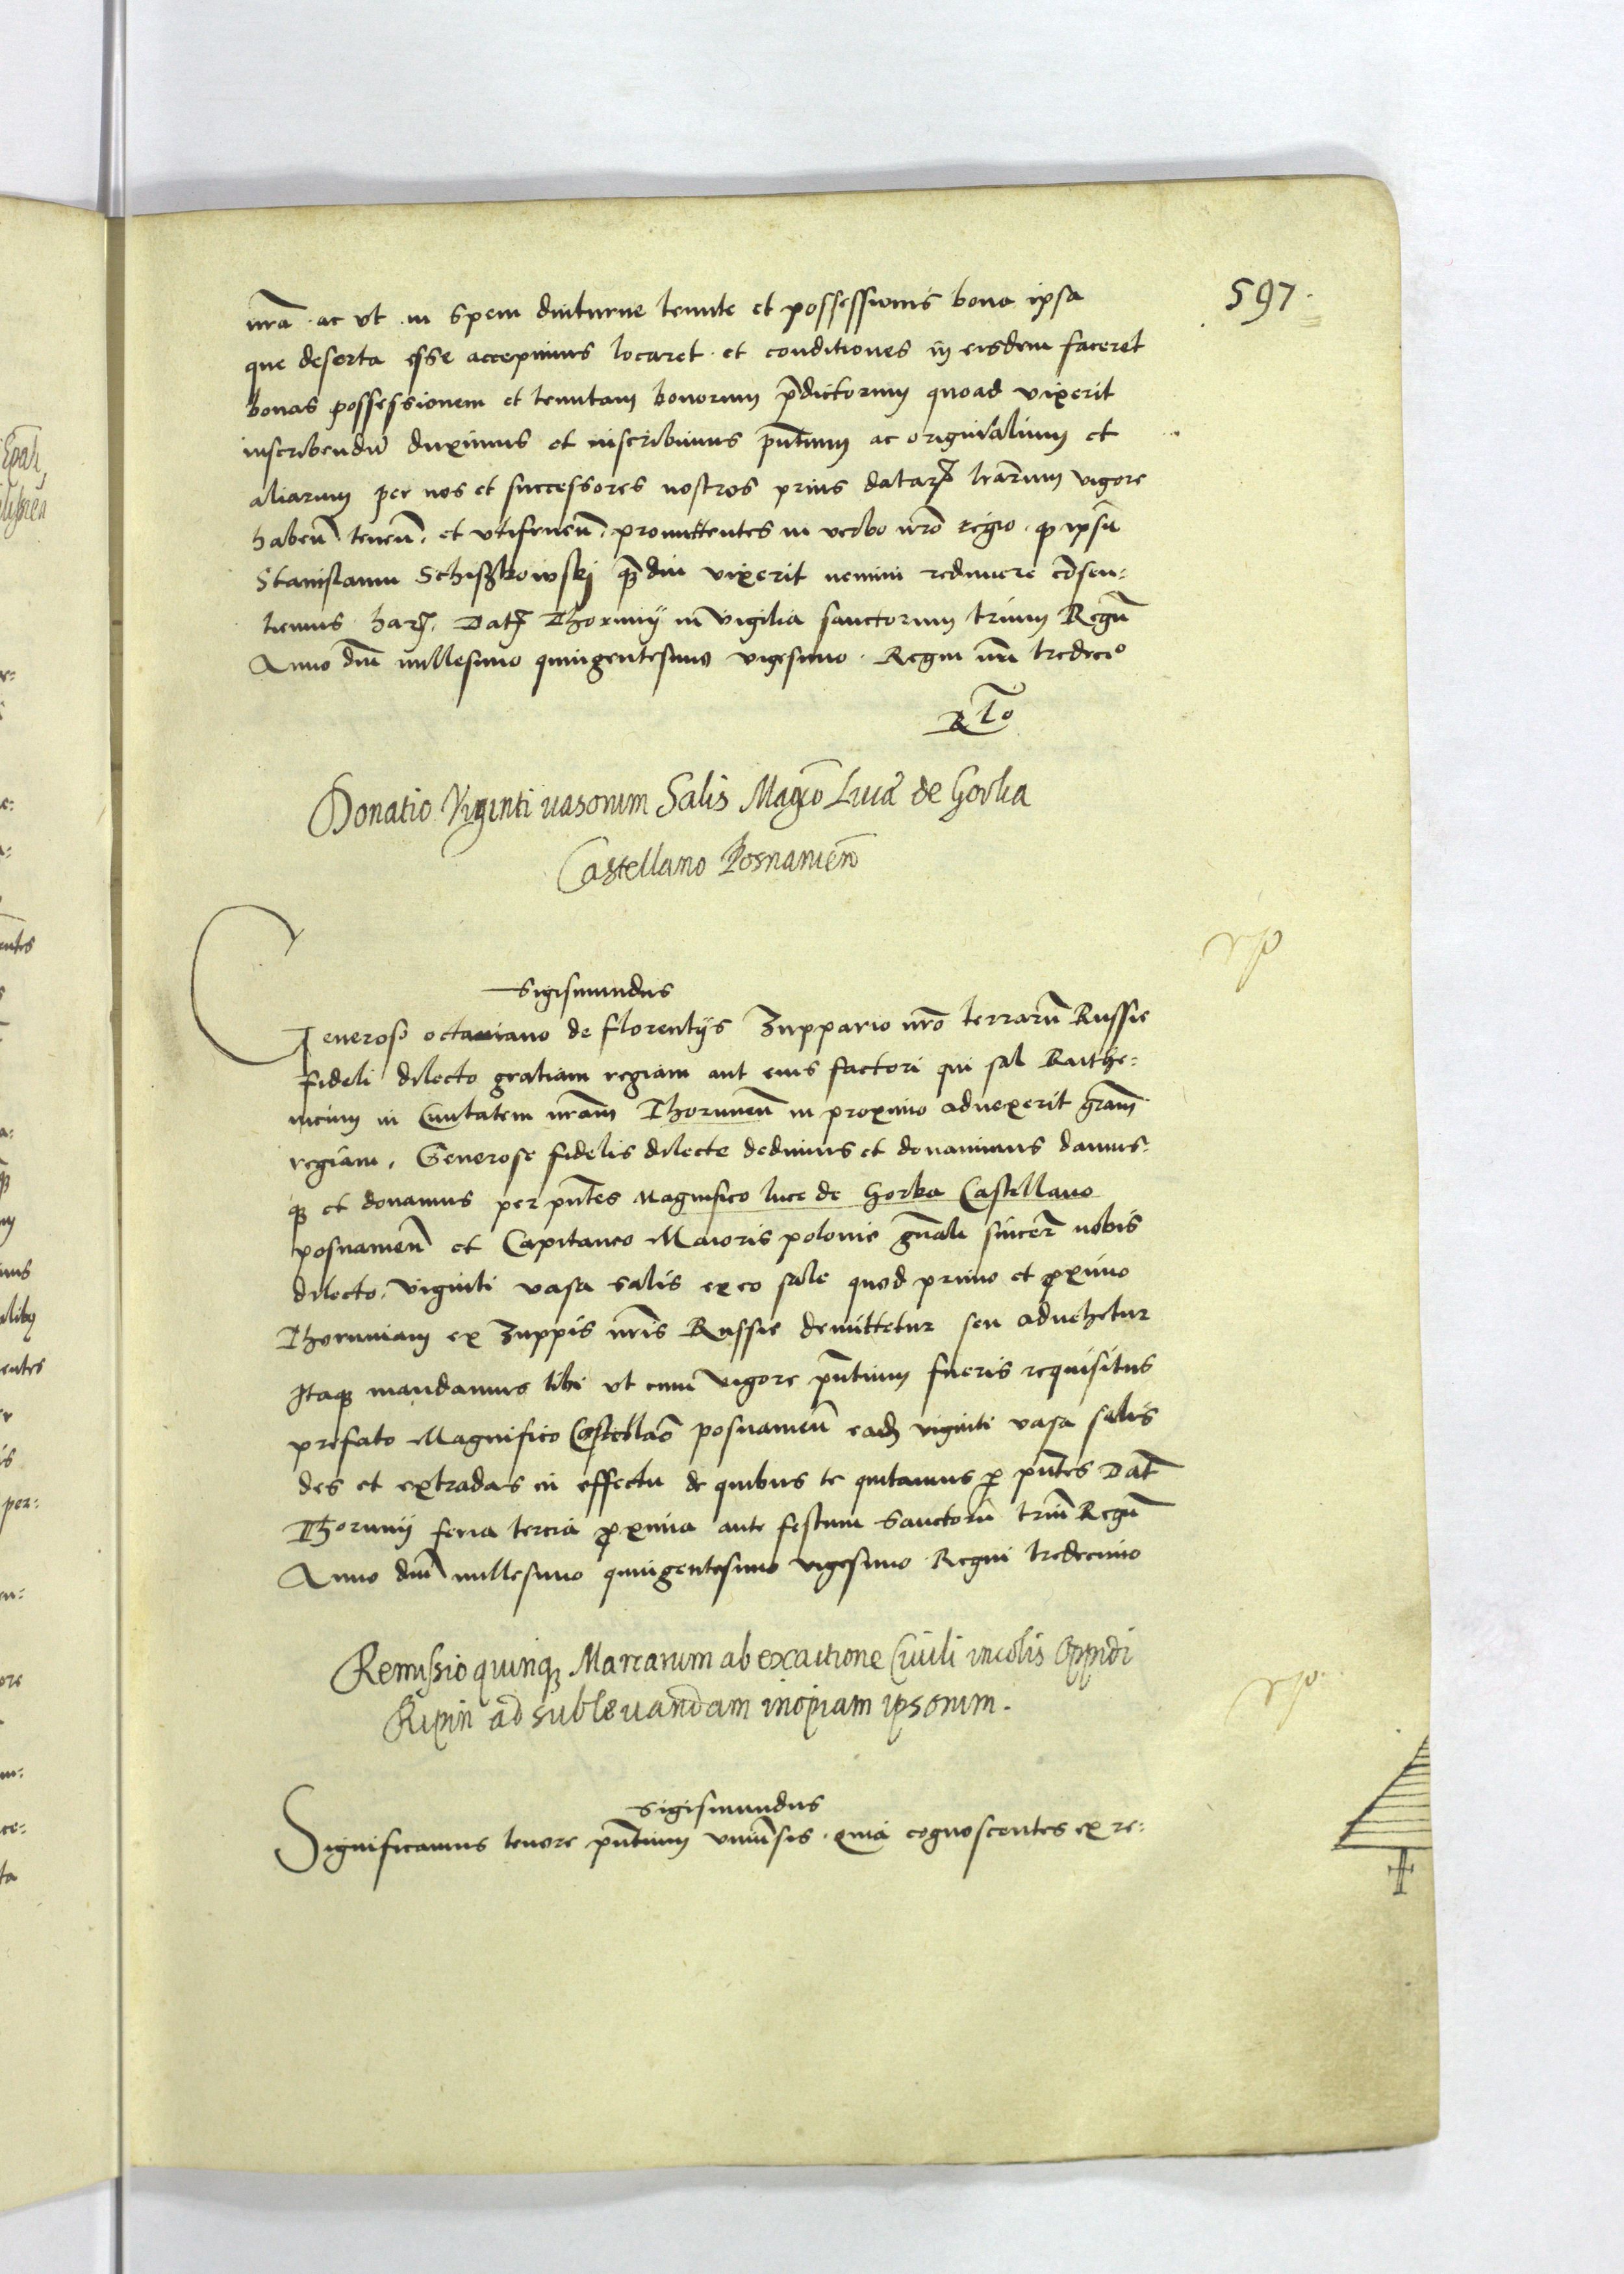 597.
nrã ac ut in spem diuturne tenute et possessionis bona ipsa
que deserta esse accepimus locaret et conditiones in eisdem faceret
bonas possessionem et tenutam bonorum p̄dictorum quoad vixerit
inscribendũ duximus et inscribimus pñtium ac originalium et
aliarum per nos et successores nostros prius datarꝫ lr̃arum vigore
habeñ teneñ. et utifrueñ. promittentes in verbo nrõ regio qꝫ ipsũ
Stanislaum Schiszkowskj q̃diu vixerit nemini redimere cõsen:
tiemus harꝫ. Datꝫ Thorunij in vigilia sanctorum trium Regũ
Anno dñi millesimo quingentesimo vigesimo. Regni nñi tredecio
R Lo
Donatio Viginti uasorum Salis Magco Lucæ de Gorka
Castellano Posnanieñ
Sigismundus
Generoso octaviano de florentijs Zuppario nrõ terrarũ Russie
fideli dilecto gratiam regiam aut eius factori qui sal Ruthe:
nicum in Ciuitatem nrãm Thoruneñ in proximo aduexerit grãm
regiam. Generose fidelis dilecte dedimus et donauimus damus:
qꝫ et donamus per pñtes Magnifico luce de Gorka Castellano
posnanieñ et Capitaneo Maioris polonie gñali sincere nobis
dilecto. viginti vasa salis ex eo sale quod primo et ꝓximo
Thoruniam ex Zuppis nrĩs Russie demittetur seu aduehetur
Itaqꝫ mandamus tibi ut cum vigore pñtium fueris requisitus
prefato Magnifico Castellaõ posnanieñ eadꝫ viginti vasa salis
des et extradas in effectu de quibus te quitamus ꝑ pñtes Dat̃
Thorunij feria tercia ꝓxima ante festum Sanctorũ triũ Regũ
Anno dñi millesimo quingentesimo vigesimo Regni tredecimo
Remissio quinqꝫ Marcarum ab exactione Ciuili incolis Oppidi
Ripin ad subleuandam inopiam ipsorum.
Sigismundus
Significamus tenore pñtium uniũsis. quia cognoscentes ex re: